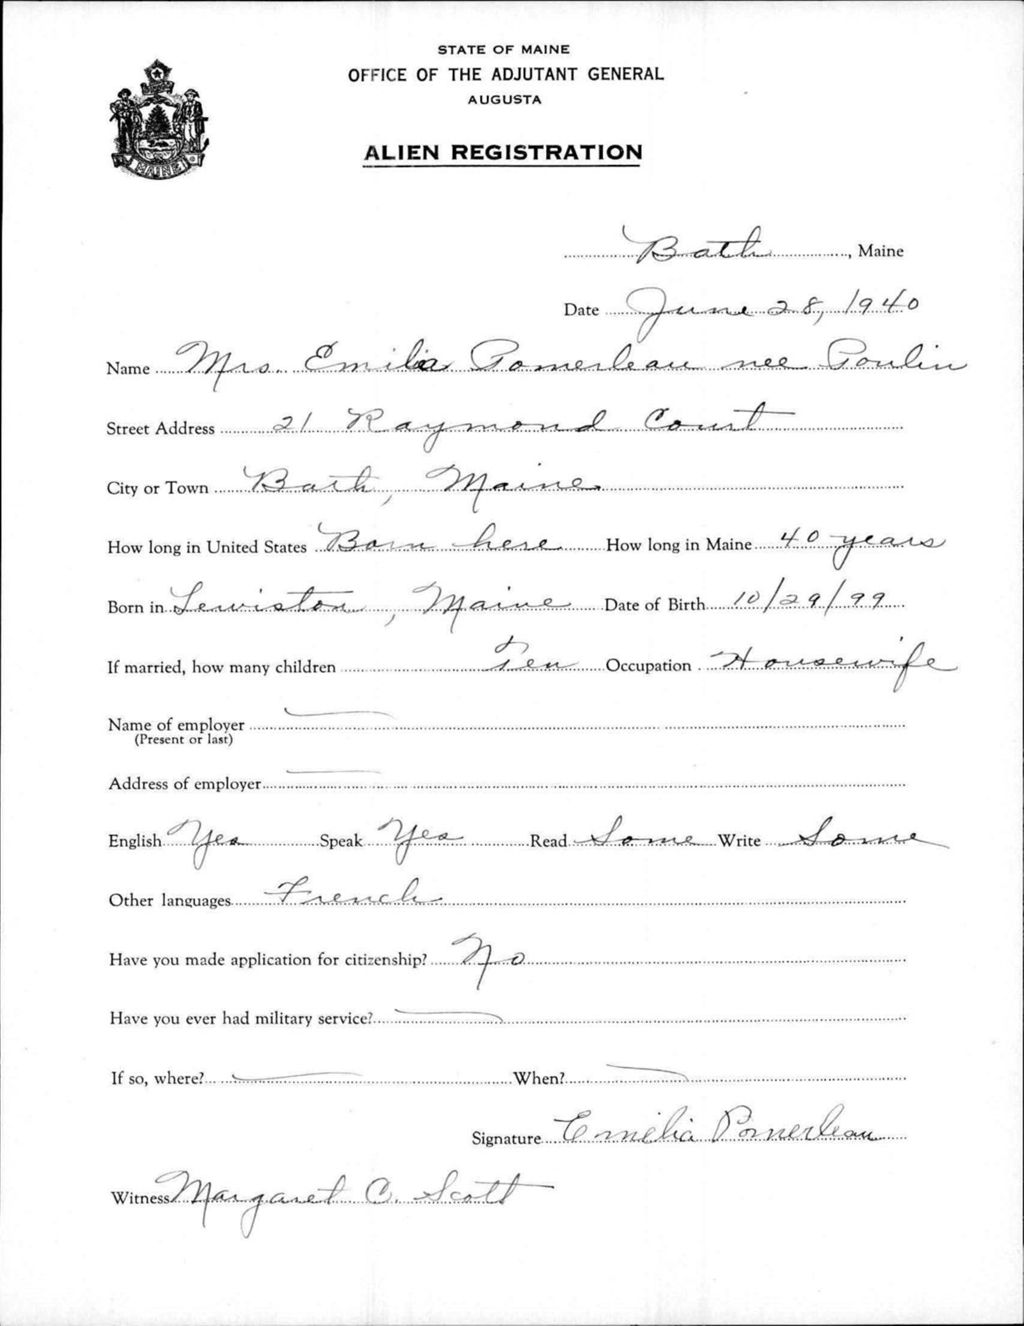 STATE OF MAINE
OFFICE OF THE ADJUTANT GENERAL
AUGUSTA
ALIEN REGISTRATION
MAINE
Bath, Maine
Date June 28, 1940
Name Mrs. Emilia Pomerleau nee Poulin
Street Address 21 Raymond Court
City or Town Bath, Maine
How long in United States Born here How long in Maine 40 years
Born in Lewiston, Maine Date of Birth 10/29/99
If married, how many children Ten Occupation Housewife
Name of employer
(Present or last)
Address of employer
English Yes Speak Yes Read Some Write Some
Other languages French
Have you made application for citizenship? No
Have you ever had military service?
If so, where? When?
Signature Emilia Pomerleau
Witness Margaret C. Scott